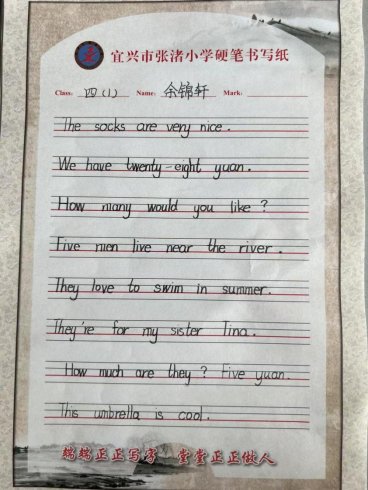 宜兴市张渚小学硬笔书写纸
Class: 四(1) Name: 余锦轩 Mark:
The socks are very nice.
We have twenty-eight yuan.
How many would you like?
Five men live near the river.
They love to swim in summer.
They're for my sister Tina.
How much are they? Five yuan.
This umbrella is cool.
端端正正写字 堂堂正正做人